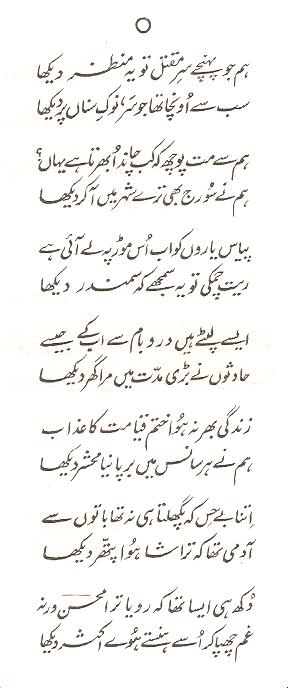 ہم جو پہنچے سرِ مقتل تو یہ منظر دیکھا
سب سے اُونچا تھا جو سر، نوکِ سناں پر دیکھا
ہم سے مت پوچھ کہ کب چاند اُبھرتا ہے یہاں؟
ہم نے سُورج بھی ترے شہر میں آ کر دیکھا
پیاس یاروں کو اب اُس موڑ پہ لے آئی ہے
ریت چمکی تو یہ سمجھے کہ سمندر دیکھا
ایسے لپٹے ہیں در و بام سے اب کے جیسے
حادثوں نے بڑی مدّت میں مرا گھر دیکھا
زندگی بھر نہ ہُوا ختم قیامت کا عذاب
ہم نے ہر سانس میں برپا نیا محشر دیکھا
اِتنا بے حِس کہ پگھلتا ہی نہ تھا باتوں سے
آدمی تھا کہ تراشا ہُوا پتّھر دیکھا
دُکھ ہی ایسا تھا کہ رویا ترا محسن ورنہ
غم چھپا کر اُسے ہنستے ہُوئے اکثر دیکھا